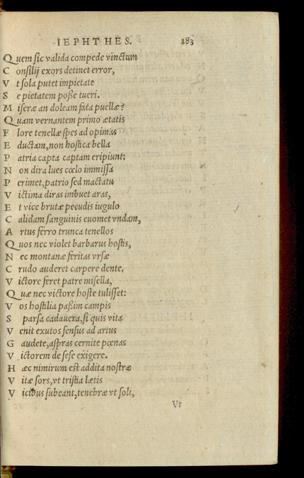 IEPHTHES. 283
Quem sic valida compede vinctum
Consilij exors detinet error,
Vt sola putet impietate
Se pietatem posse tueri.
Miseræ an doleam fata puellæ?
Quam vernantem primo ætatis
Flore tenellæ spes ad opimas
Eductam, non hostica bella
Patria capta captam eripiunt;
Non dira lues cœlo immissa
Perimet, patrio sed mactatu
Victima diras imbuet aras,
Et vice brutæ pecudis iugulo
Calidam sanguinis euomet vndam,
Artus ferro trunca tenellos
Quos nec violet barbarus hostis,
Nec montanæ feritas vrsæ
Crudo auderet carpere dente,
Victore feret patre misella,
Quæ nec victore hoste tulisset:
Vos hostilia passim campis
Sparsa cadauera, si quis vitæ
Venit exutos sensus ad artus
Gaudete, aspras cernite pœnas
Victorem de sese exigere.
Hæc nimirum est addita nostræ
Vitæ sors, vt tristia lætis
Vicibus subeant, tenebræ vt soli,
Vt